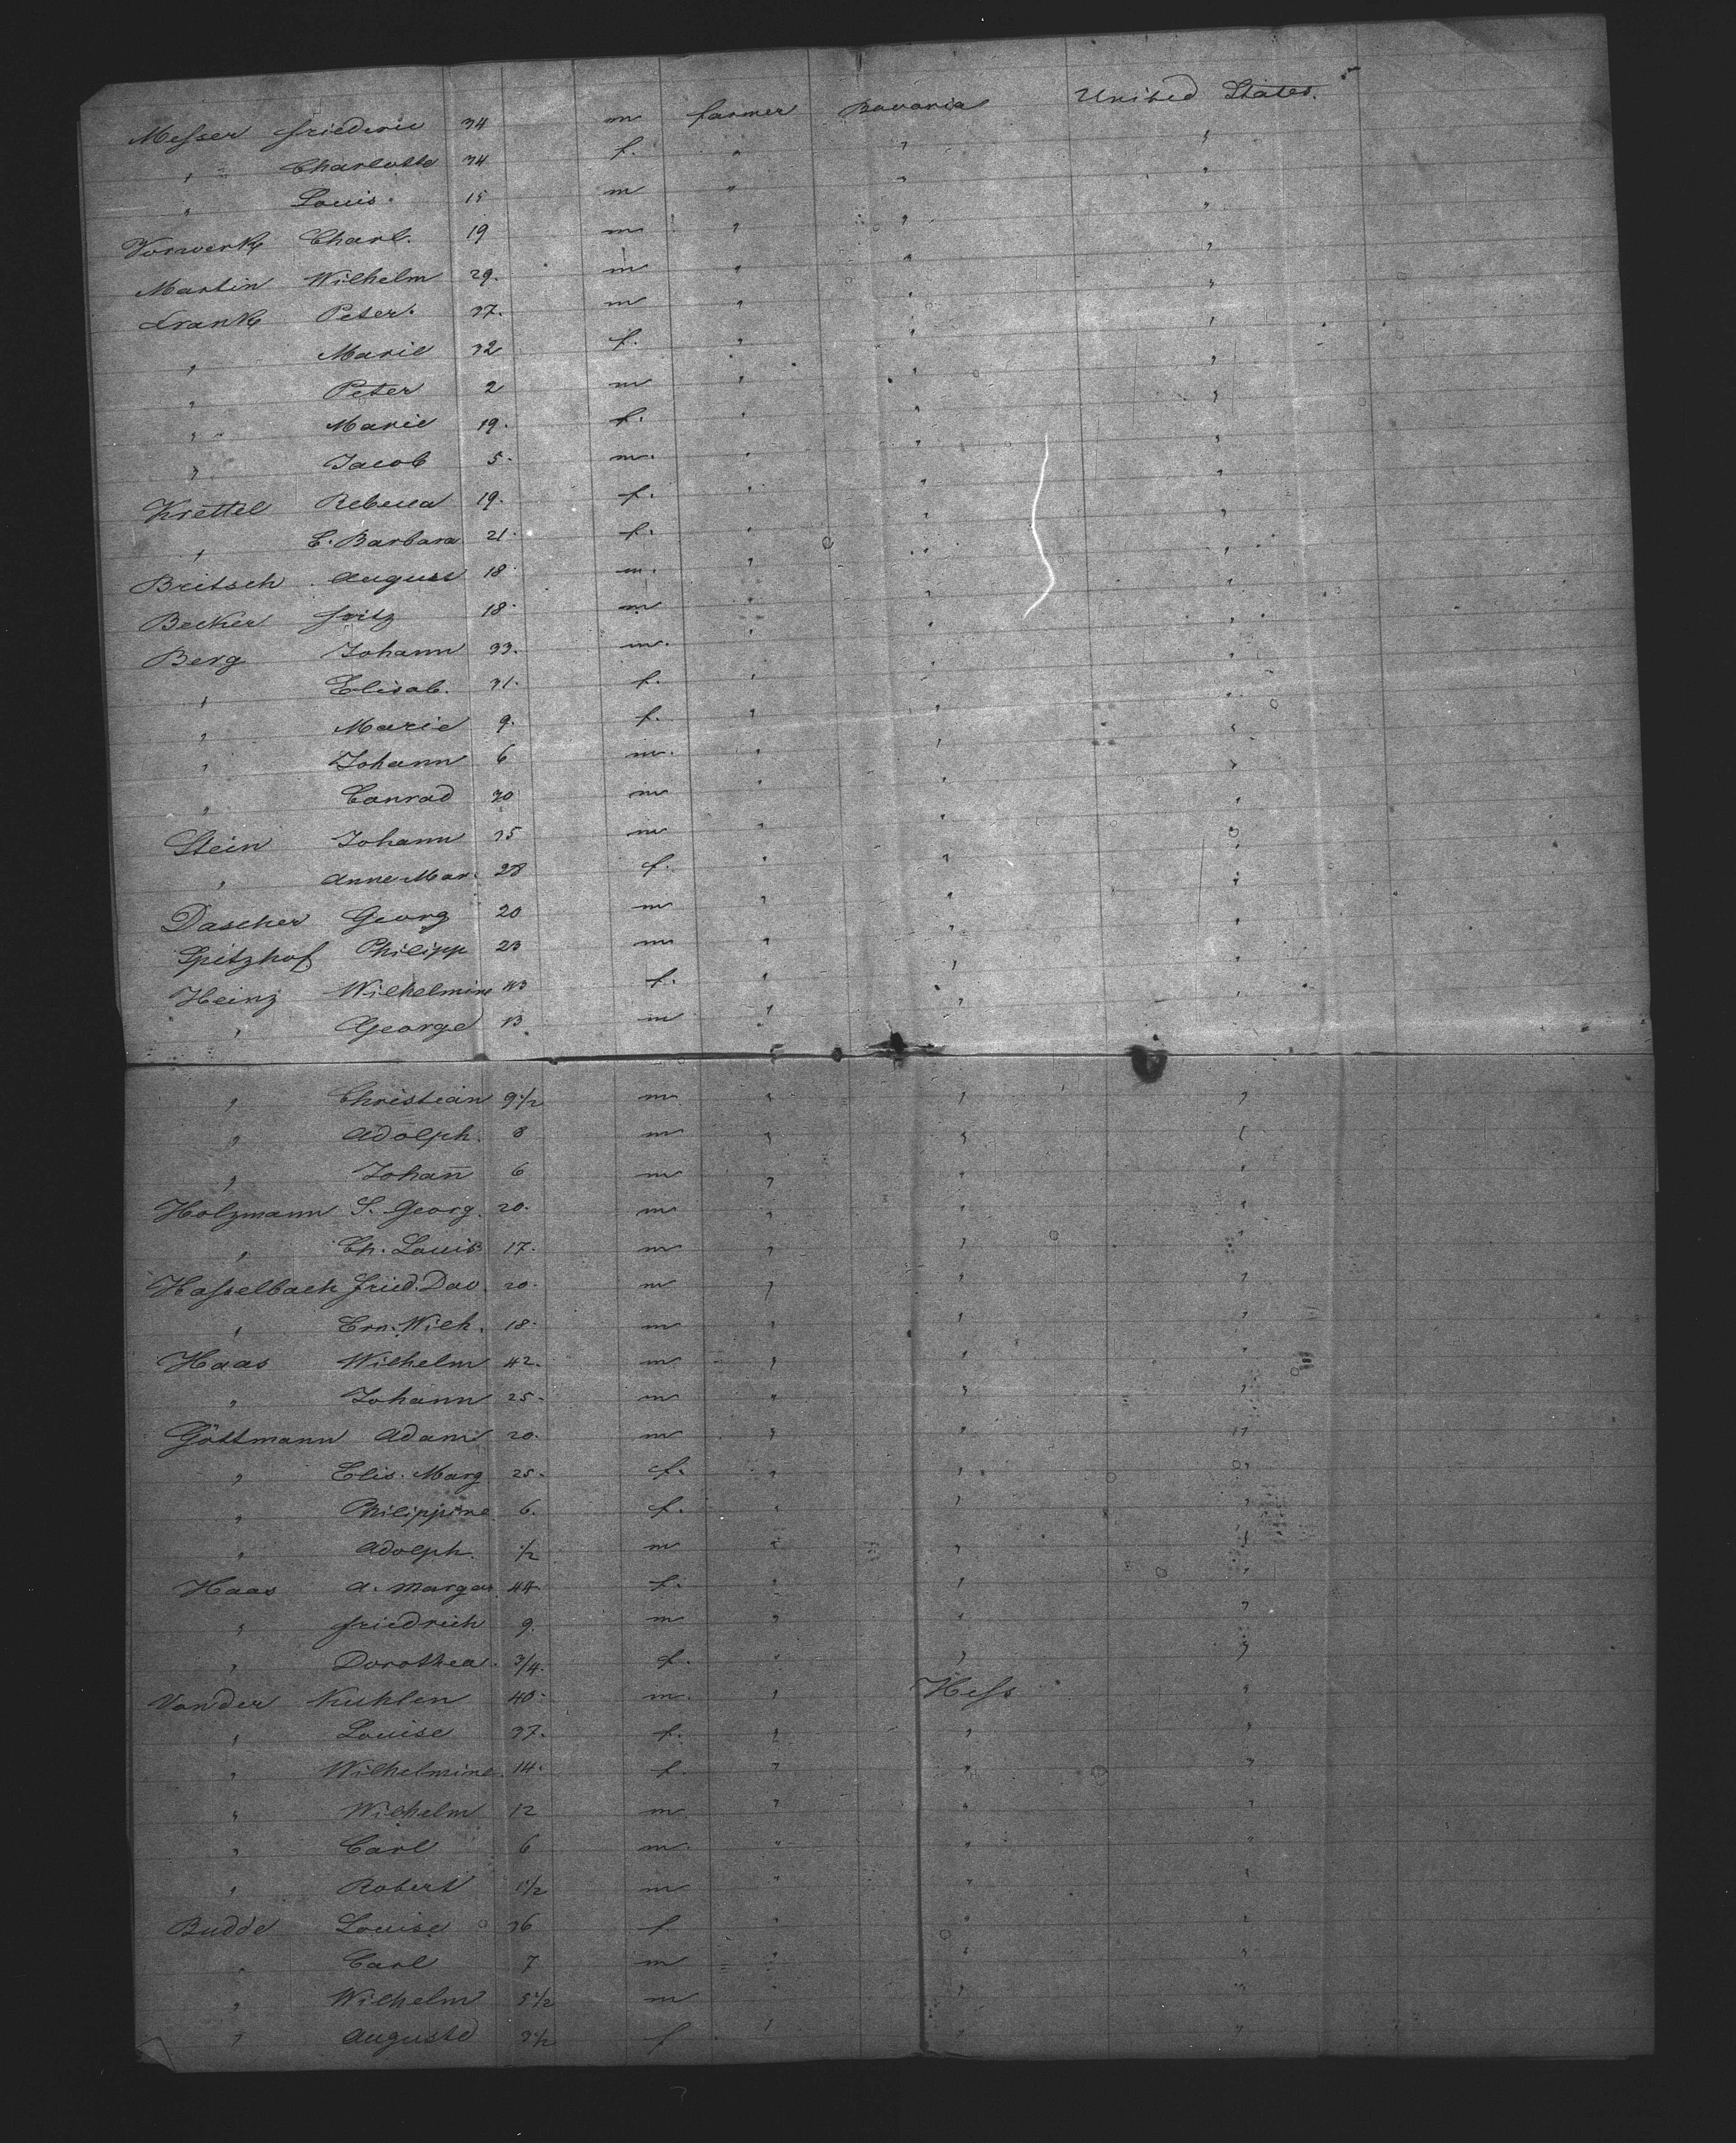 Messer Friederic 34 m farmer Bavaria United States.
" Charlotte 34 f. " " "
" Louis. 15 m " " "
Vorwerk Charl. 19 m " " "
Martin Wilhelm 29. m " " "
Frank Peter. 37. m " " "
" Marie 32 f. " " "
" Peter 2 m " " "
" Marie 19. f. " " "
" Jacob 5. m. " " "
Krettel Rebecca 19. f. " " "
" E. Barbara 21. f. " " "
Britsch August 18. m. " " "
Becker Fritz 18. m " " "
Berg Johann 33. m. " " "
" Elisab. 31. f. " " "
" Marie 9. f. " " "
" Johann 6 m. " " "
" Conrad 30 m " " "
Stein Johann 35 m " " "
" Anne Mar. 28 f. " " "
Dascher Georg 20 m " " "
Spitzhof Philipp 23 m " " "
Heinz Wilhelmine 43 f. " " "
" George 13 m " " "
" Christian 9 1/2 m " " "
" Adolph. 8 m " " "
" Johan̅ 6 m " " "
Holzmann S. Georg. 20. m " " "
" Ch. Louis 17. m " " "
Hasselbach Fried. Dav. 20. m " " "
" Ern. Wilh. 18. m " " "
Haas Wilhelm 42. m " " "
" Johann 25. m " " "
Göttmann Adam 20. m " " "
" Elis. Marg 25. f. " " "
" Philippine 6. f. " " "
" Adolph. 1/2 m " " "
Haas A. Margar 44. f. " " "
" Friedrich 9. m " " "
" Dorothea. 3/4. f. " " "
Vonder Kuhlen 40. m. " Hess "
" Louise 37. f. " " "
" Wilhelmine. 14. f. " " "
" Wilhelm 12 m " " "
" Carl 6 m. " " "
" Robert 1 1/2 m " " "
Budde Louise 36 f. " " "
" Carl 7 m " " "
" Wilhelm 5 1/2 m " " "
" Auguste 3 1/2 f " " "